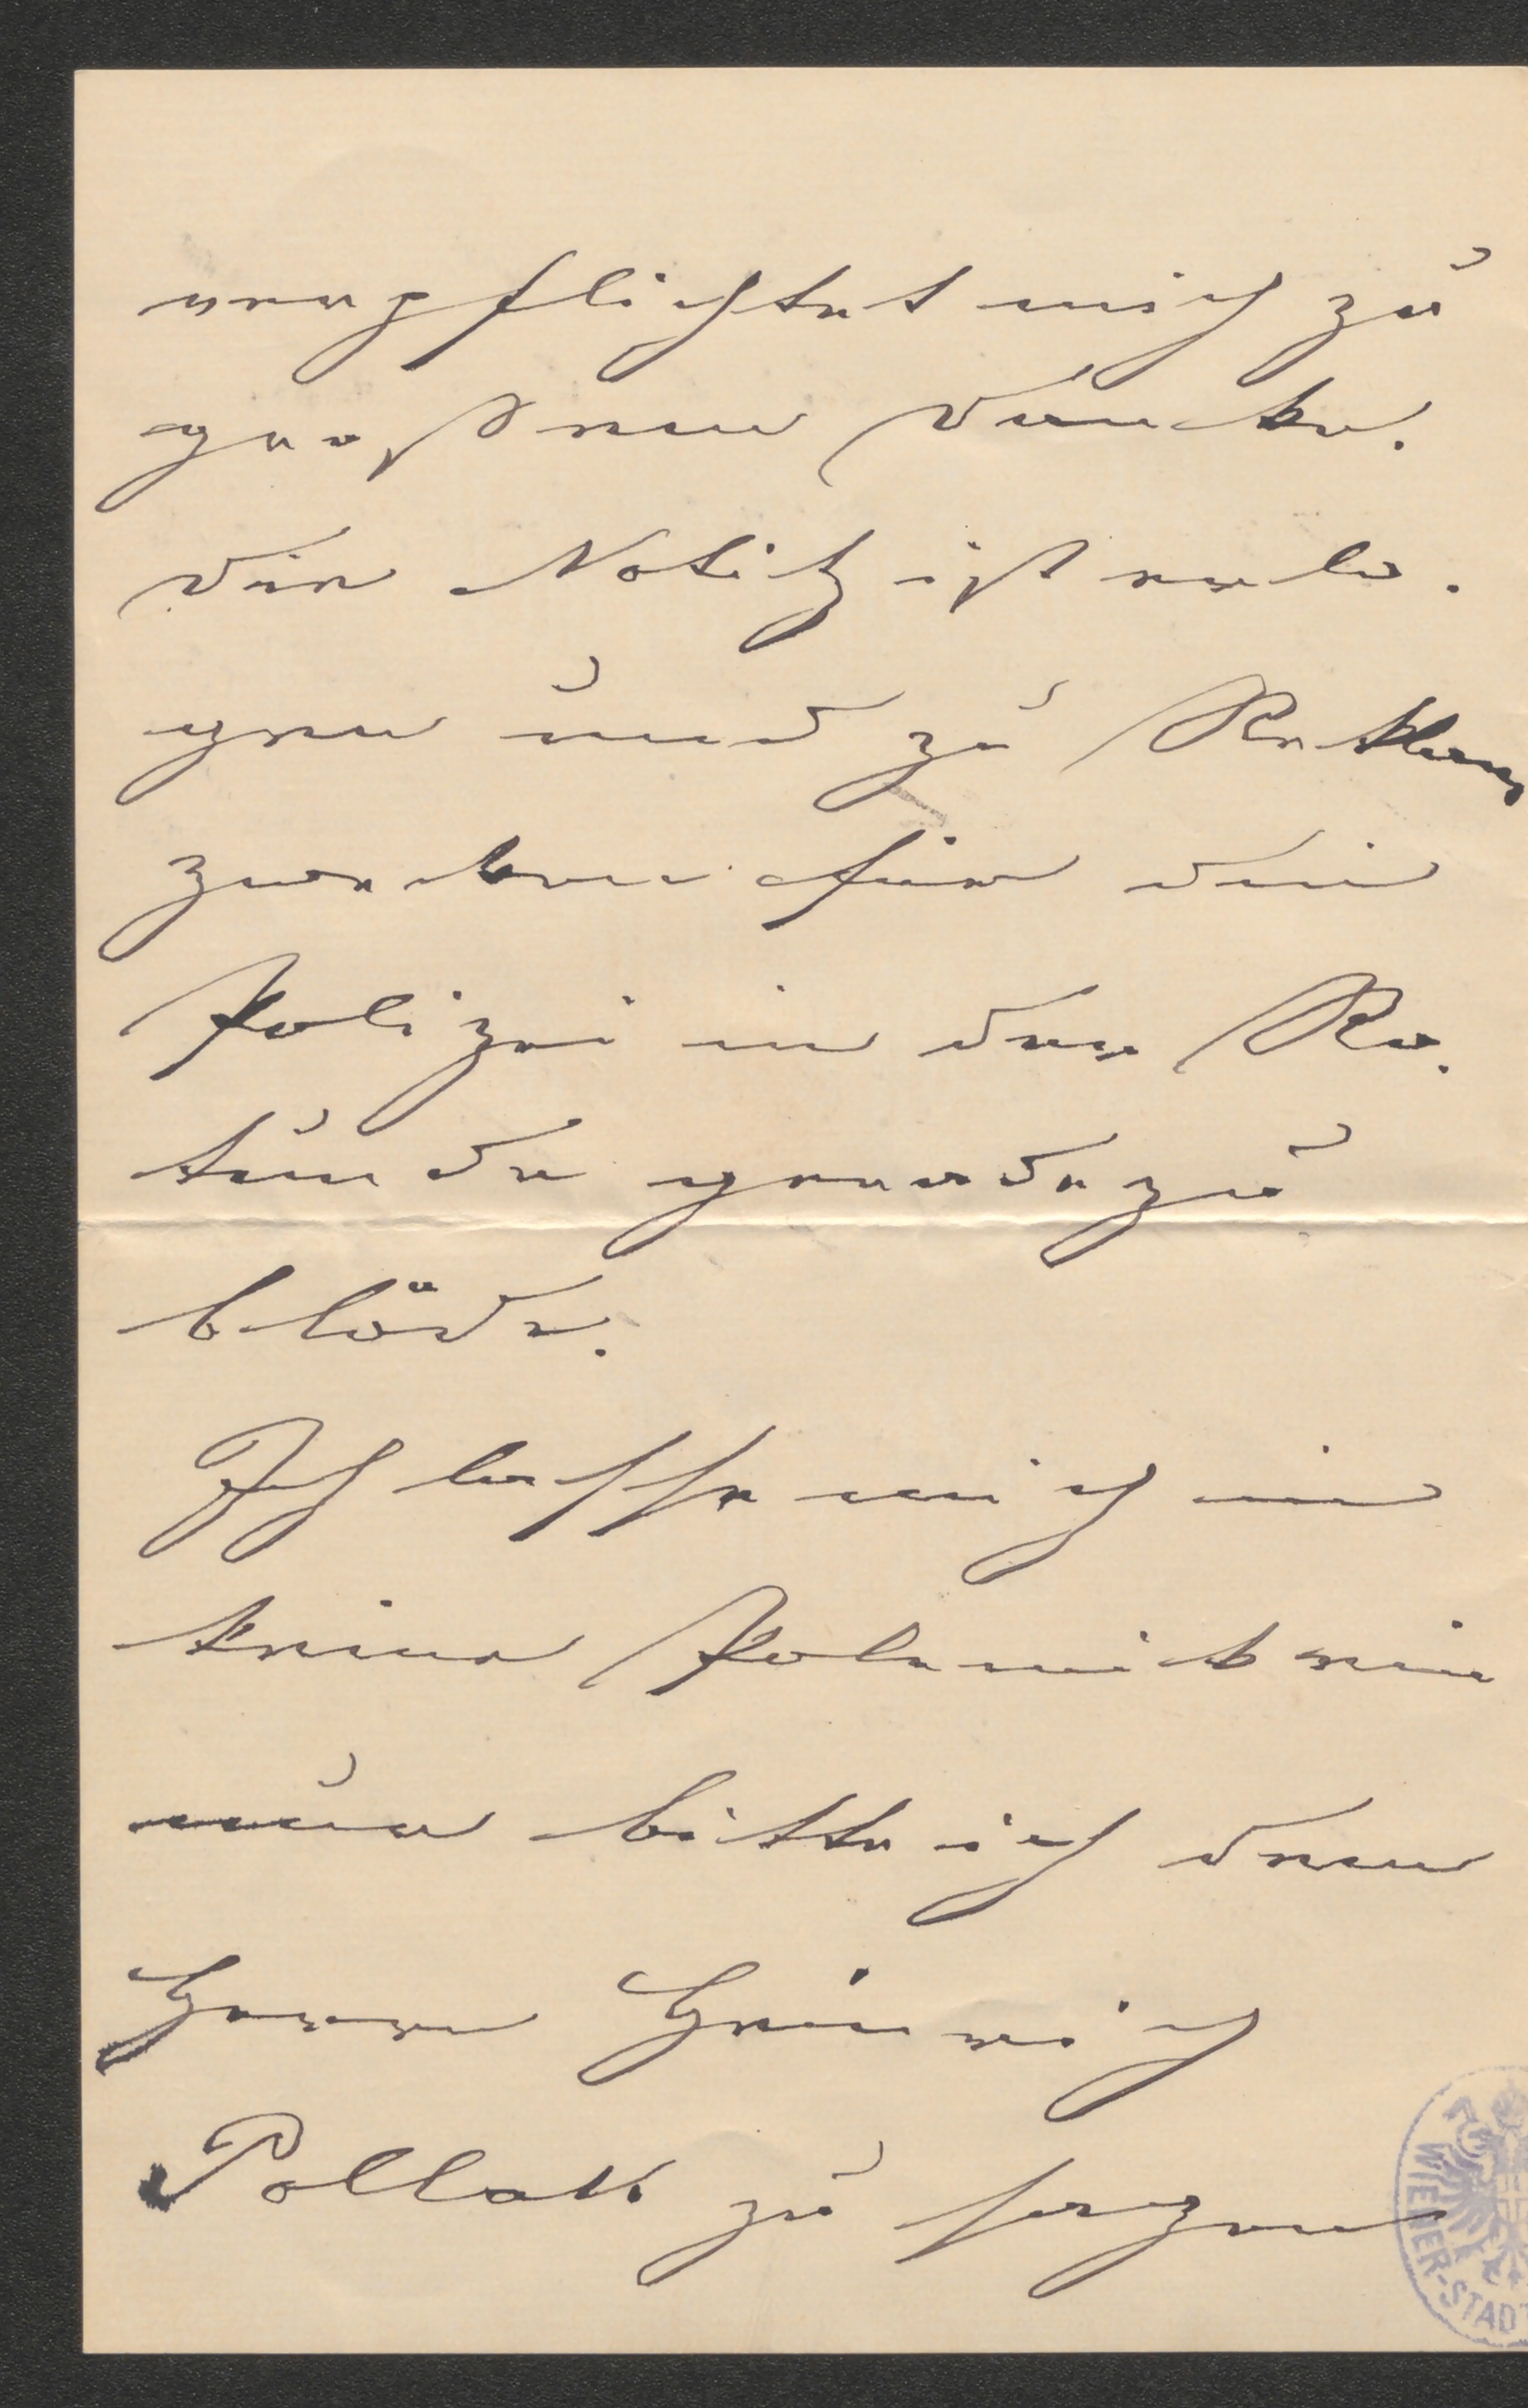 verpflichtet mich zu
großem Danke.
Die Notitz ist verlo-
gen und zu Reklam
zwecken für die
Polizei in der Re-
tunde geradezu
blöde.
Ich lasse mich in
keine Polemik ein
nur bitte ich dem
Herrn Heinrich
Pollak zu sagen
WIENER-STADT